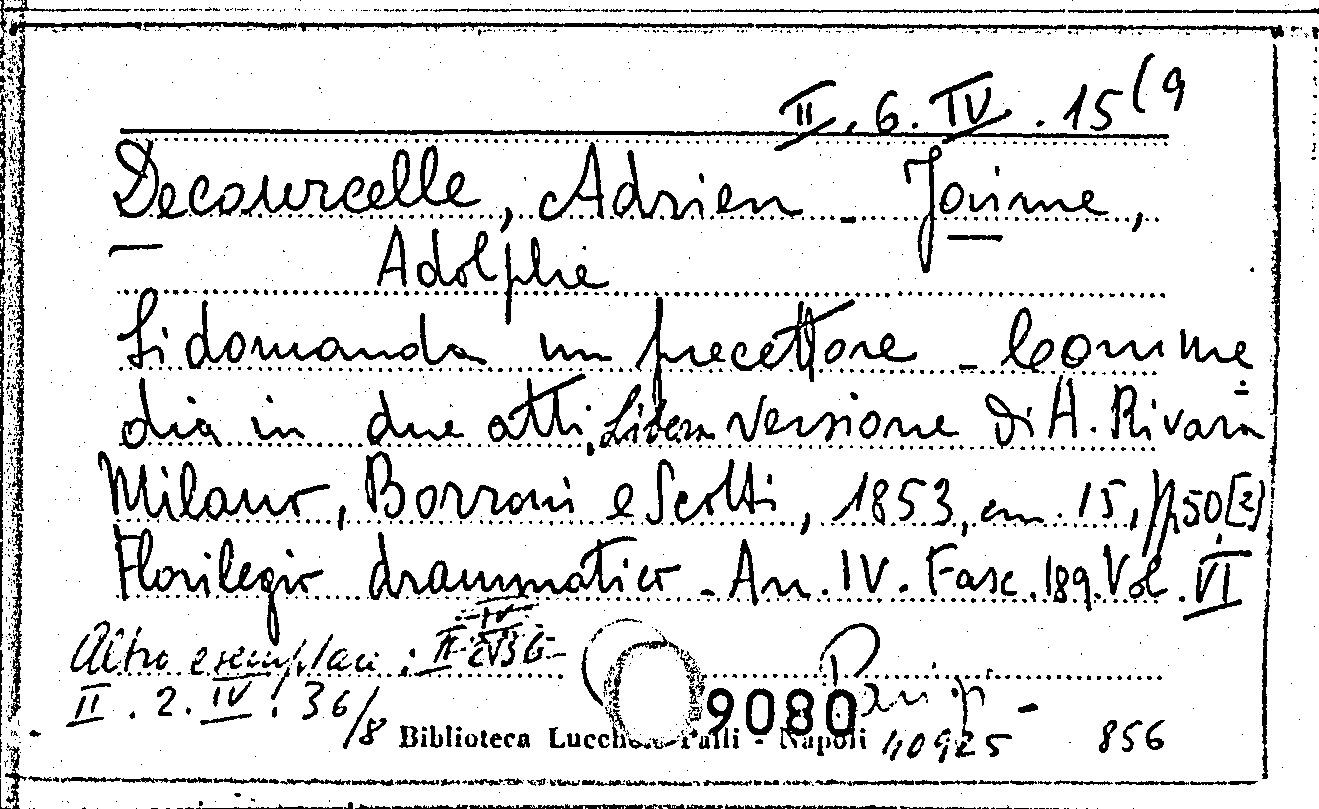 II. 6. IV. 15(9
Decourcelle, Adrien - Jaime,
Adolphe
Si domanda un precettore - Comme
dia in due atti, Libera versione di A. Rivara
Milano, Borroni e Scotti, 1853, cm. 15, pp. 50 [2]
Florilegio drammatico - An. IV. Fasc. 189. Vol. VI
Altro esemplare:
II. 2. IV. 36/8
9080
Biblioteca Lucchesi Palli - Napoli 40925 856